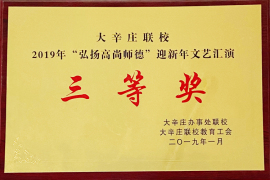 大辛庄联校
2019年“弘扬高尚师德”迎新年文艺汇演
三等奖
大辛庄办事处联校
大辛庄联校教育工会
二〇一九年一月